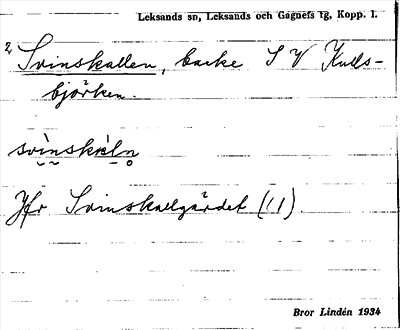 Leksands sn, Leksands och Gagnefs tg, Kopp. l.
2 Svinskallen, backe S V Kulls-
björken.
svìnskàln
Jfr Svinskallgärdet (11).
Bror Lindén 1934